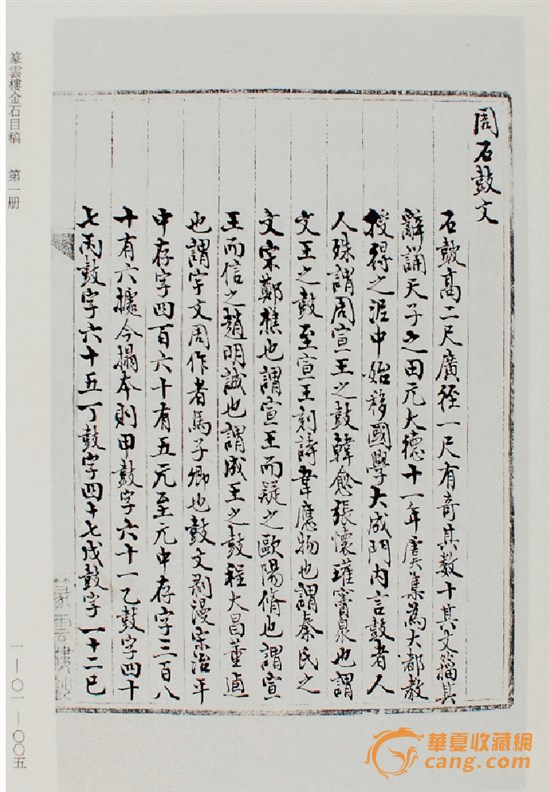 周石鼓文
石鼓高二尺廣徑一尺有奇其數十其文籀其
辭誦天子之田元大德十一年虞集為大都教
授得之泥中始移國學大成門內言鼓者人
人殊謂周宣王之鼓韓愈張懷瓘竇臮也謂
文王之鼓至宣王刻詩韋應物也謂秦氏之
文宋鄭樵也謂宣王而疑之歐陽脩也謂宣
王而信之趙明誠也謂成王之鼓程大昌董逌
也謂宇文周作者馬子卿也鼓文剥漫宋治平
中存字四百六十有五元至元中存字三百八
十有六據今搨本則甲鼓字六十一乙鼓字四十
七丙鼓字六十五丁鼓字四十七戊鼓字一十二巳
篆雲樓金石目稿 第一册
一—〇一—〇〇五
華夏收藏網
cang.com